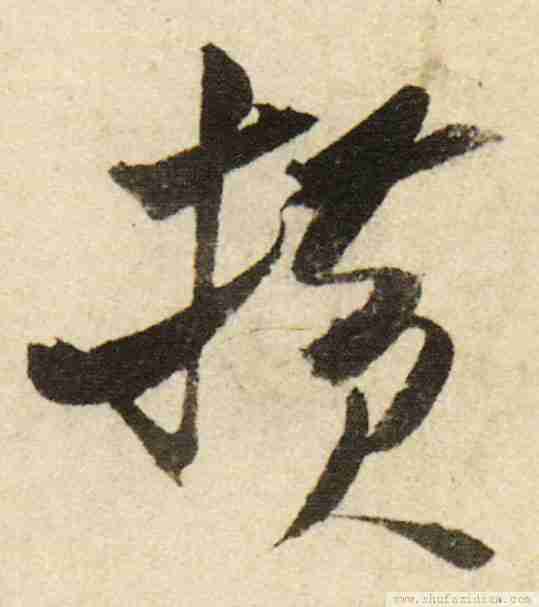 横
www.shufazidian.com